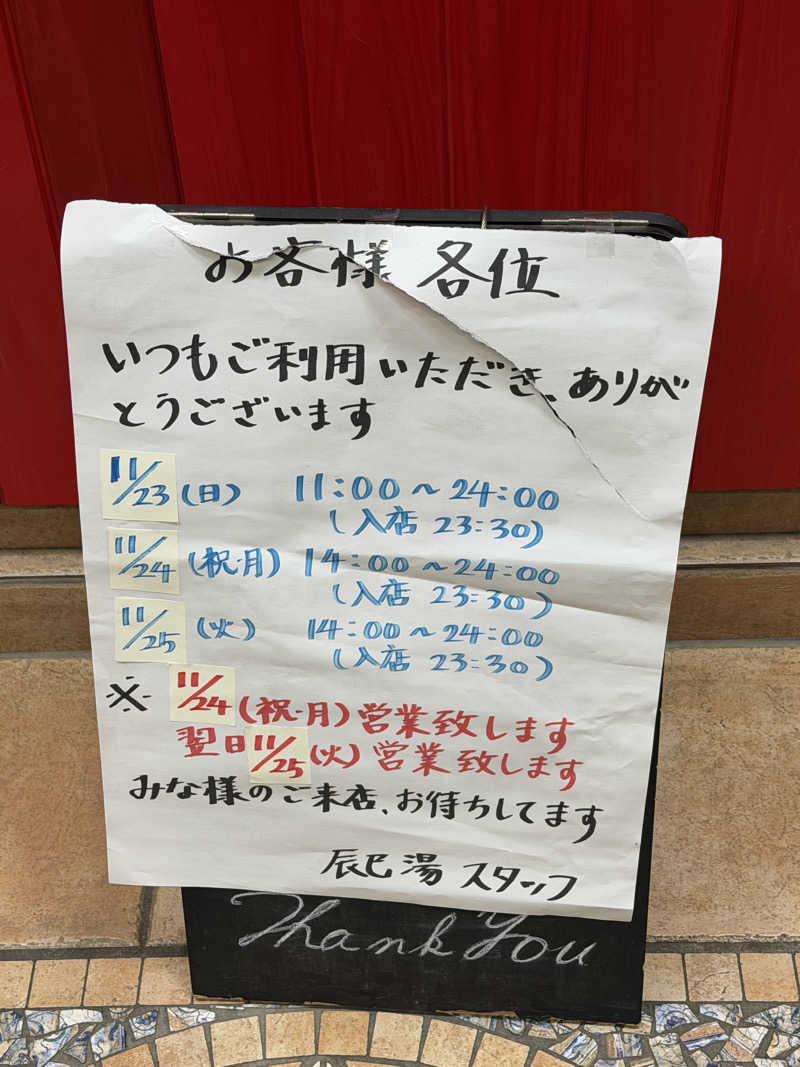 お客様 各位
いつもご利用いただき、ありが
とうございます
11/23(日) 11:00~24:00
(入店 23:30)
11/24(祝・月) 14:00~24:00
(入店 23:30)
11/25(火) 14:00~24:00
(入店 23:30)
※ 11/24(祝・月)営業致します
翌日11/25(火)営業致します
みな様のご来店、お待ちしてます
辰巳湯 スタッフ
Thank You